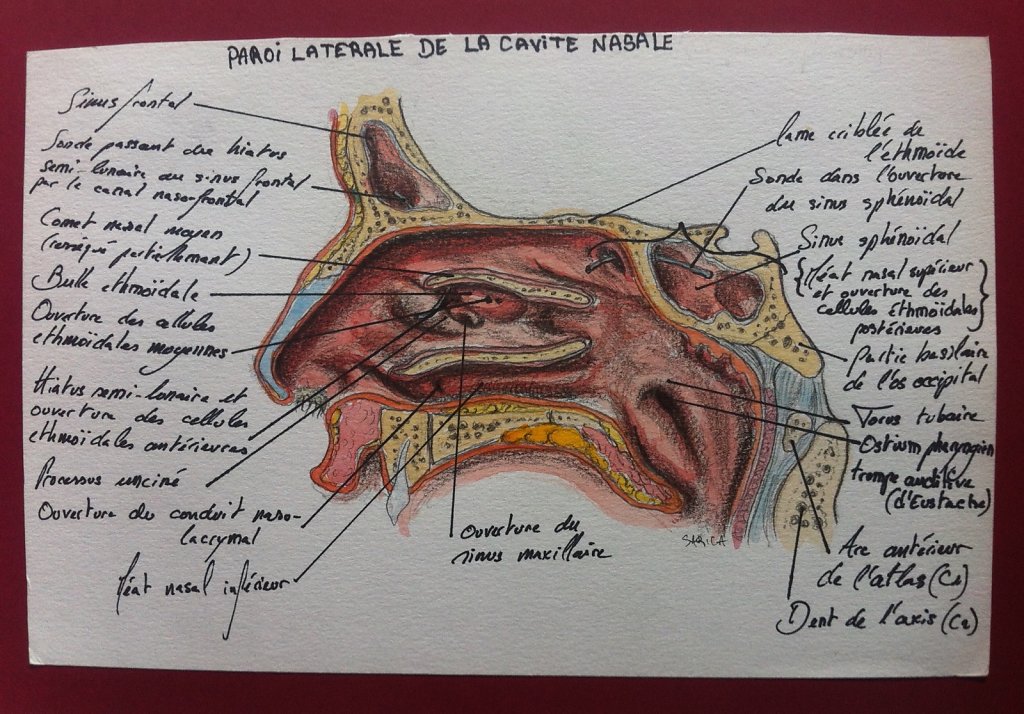 PAROI LATERALE DE LA CAVITE NASALE
Sinus frontal
Sonde passant du hiatus
semi-lunaire au sinus frontal
par le canal naso-frontal
Cornet nasal moyen
(réséqué partiellement)
Bulle ethmoïdale
Ouverture des cellules
ethmoïdales moyennes
Hiatus semi-lunaire et
ouverture des cellules
ethmoïdales antérieures
Processus unciné
Ouverture du conduit naso-
lacrymal
Méat nasal inférieur
Ouverture du
sinus maxillaire
lame criblée de
l'ethmoïde
Sonde dans l'ouverture
du sinus sphénoïdal
Sinus sphénoïdal
(Méat nasal supérieur
et ouverture des
cellules ethmoïdales
postérieures
Partie basilaire
de l'os occipital
Torus tubaire
Ostium pharyngien
trompe auditive
(d'Eustache)
Arc antérieur
de l'atlas (C1)
Dent de l'axis (C2)
SARICA